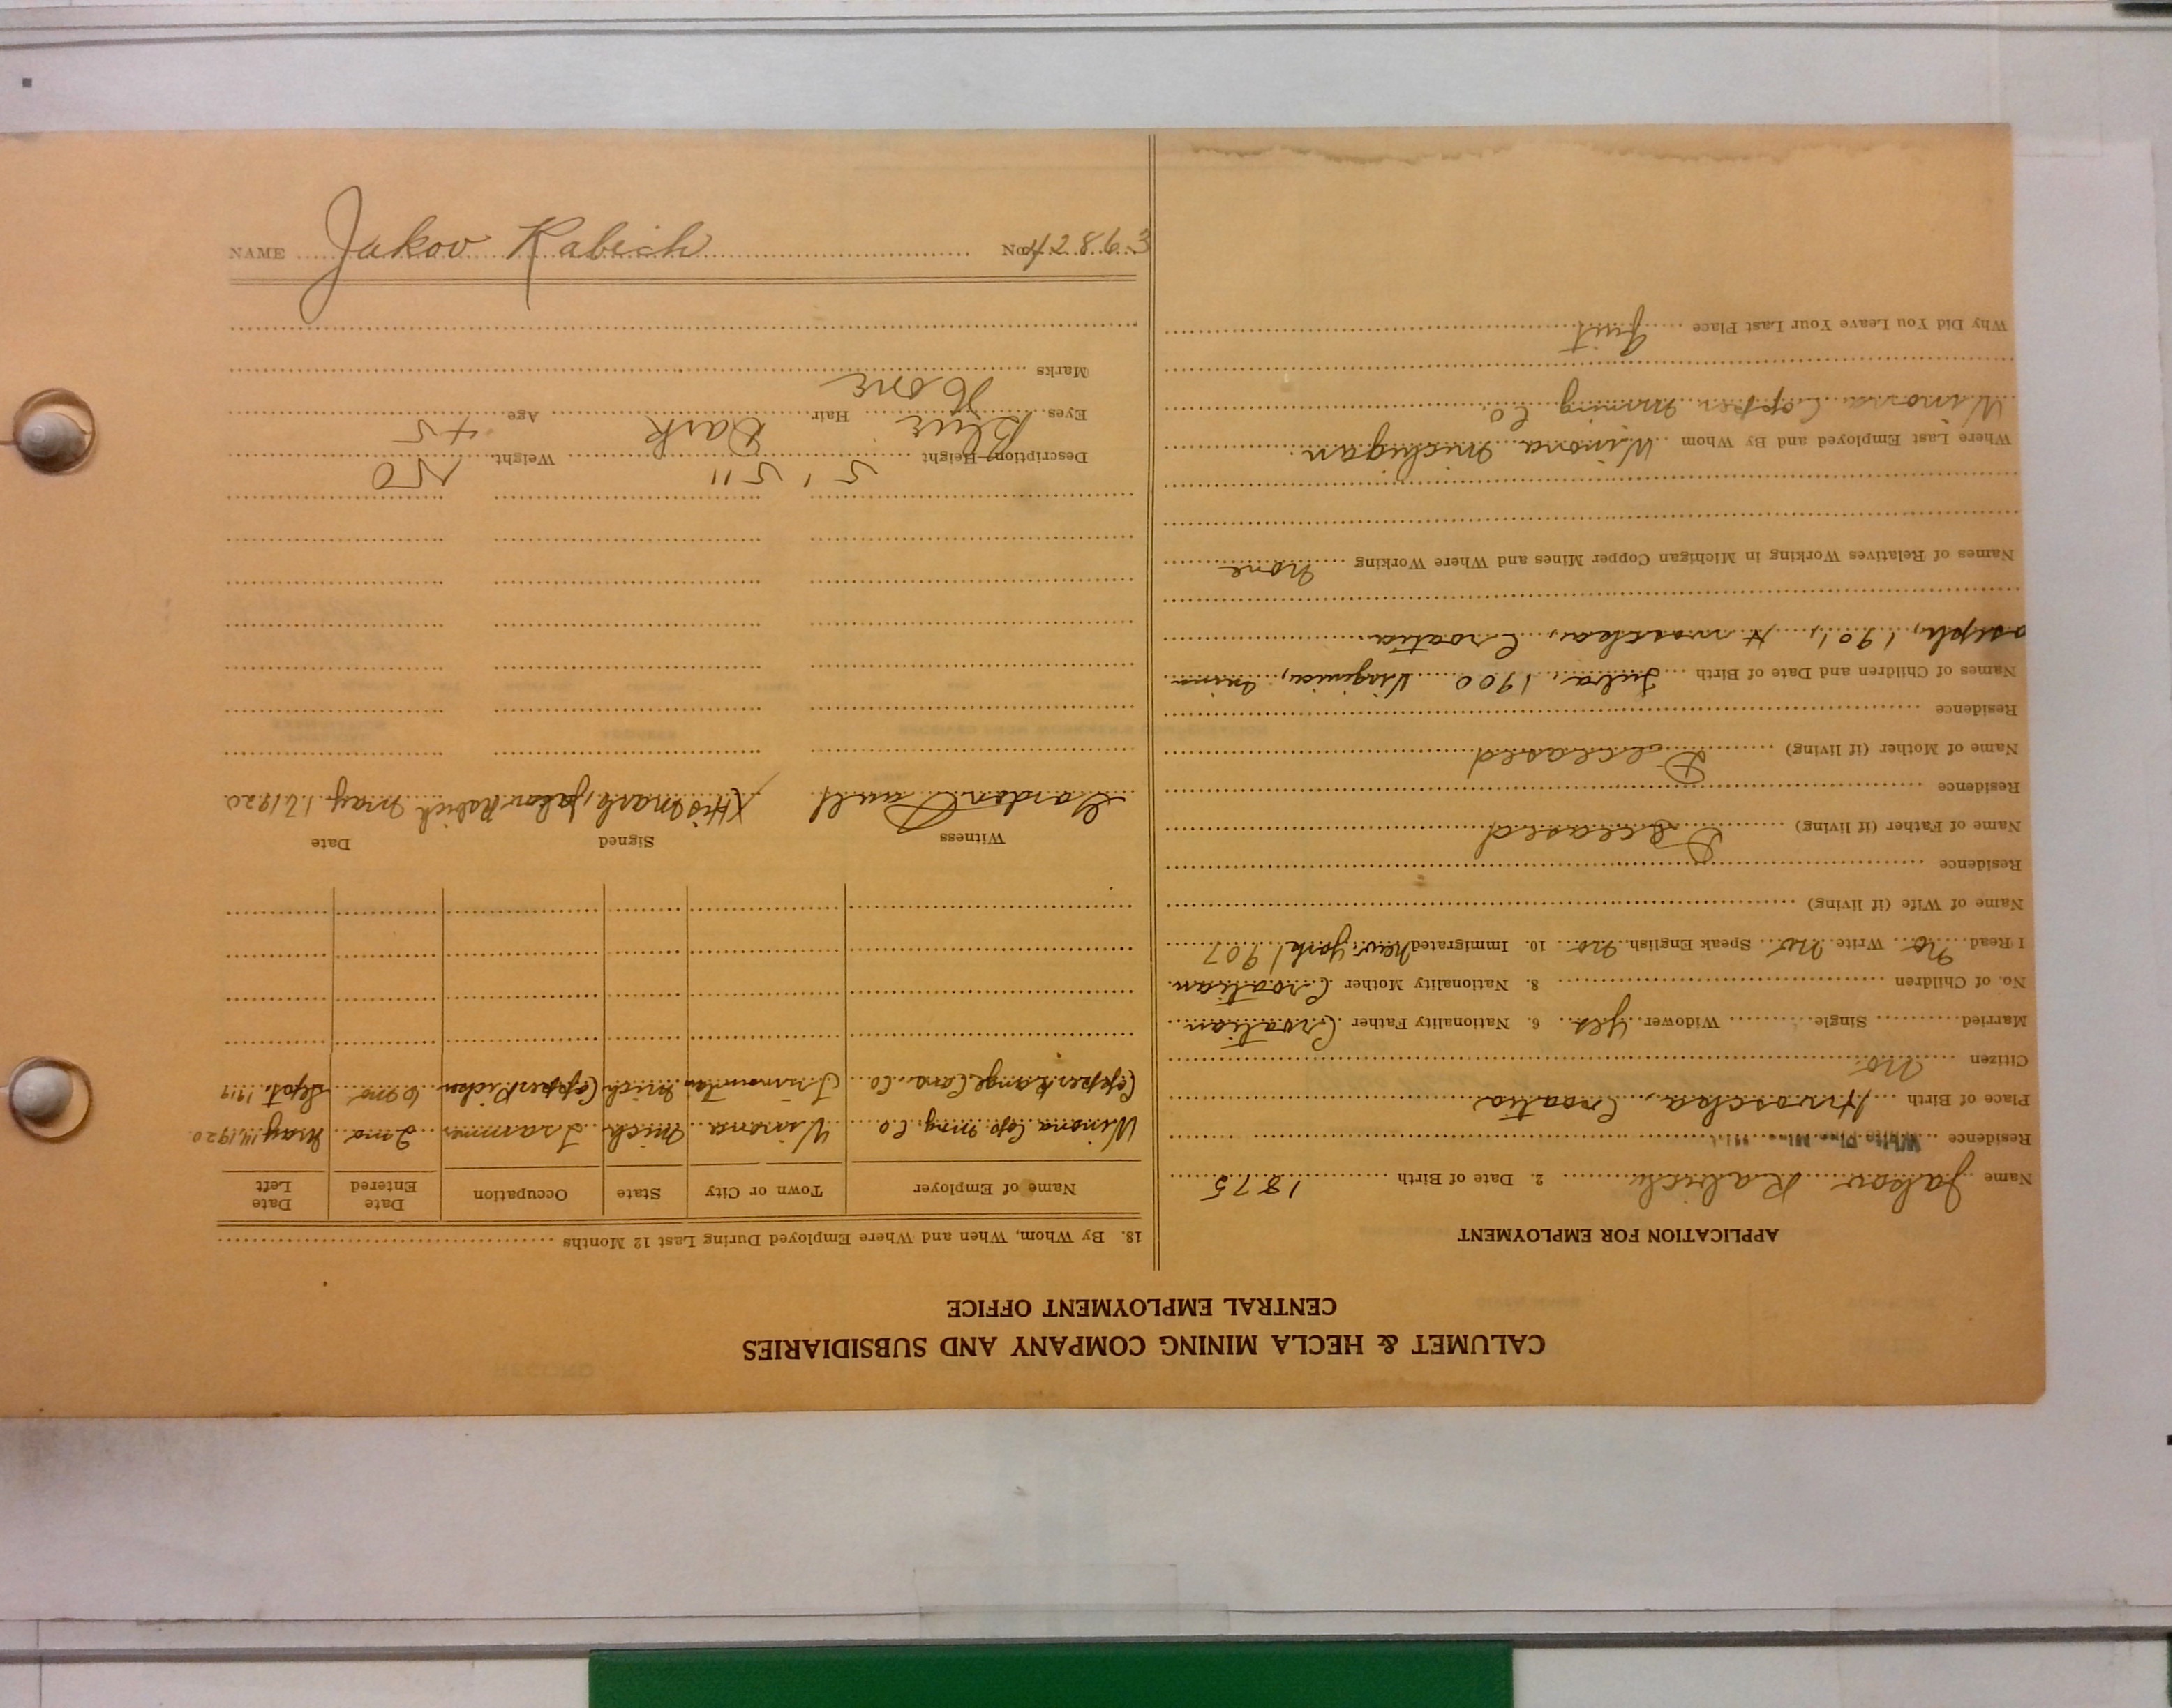 CALUMET & HECLA MINING COMPANY AND SUBSIDIARIES
CENTRAL EMPLOYMENT OFFICE
APPLICATION FOR EMPLOYMENT
Name Jakov Rabich 2. Date of Birth 1875
Residence White Pine Mine
Place of Birth Hrvoscka, Croatia
Citizen No.
Married Single Widower Yes 6. Nationality Father Croatian
No. of Children 8. Nationality Mother Croatian
I Read No Write No Speak English No 10. Immigrated New York 1907
Name of Wife (if living)
Residence
Name of Father (if living) Deceased
Residence
Name of Mother (if living) Deceased
Residence
Names of Children and Date of Birth 1900 Virginia, Minn
oseph, 1901, Croatia
Names of Relatives Working in Michigan Copper Mines and Where Working None
Where Last Employed and By Whom Winona Michigan
Winona Copper Mining Co
Why Did You Leave Your Last Place Quit
18. By Whom, When and Where Employed During Last 12 Months
Name of Employer Town or City State Occupation Date Entered Date Left
Winona Cop Mng. Co Winona Mich Trammer 2 mo May 14, 1920.
Copper Range Cons. Co Trimountain Mich Copper Picker 6 mo Sept. 1919
Witness Signed Date
Gordon X His Mark, Jakov Rabich May 17, 1920
Description—Height 5' 5" Weight 150
Eyes Blue Hair Dark Age 45
Marks None
NAME Jakov Rabich NO. 42863